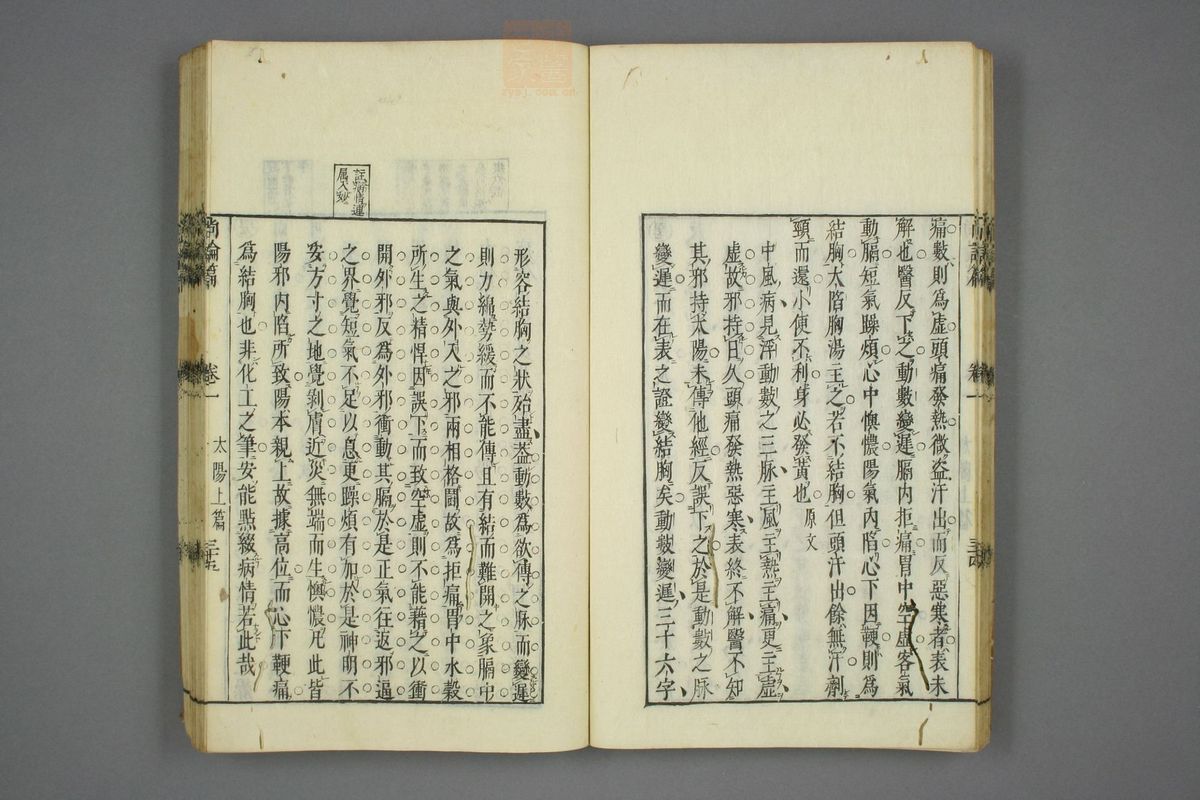 痛數則爲虛頭痛發熱微盜汗出而反惡寒者表未
解也醫反下之動數變遲膈內拒痛胃中空虛客氣
動膈短氣躁煩心中懊憹陽氣內陷心下因鞕則爲
結胸大陷胸湯主之若不結胸但頭汗出餘無汗劑
頸而還小便不利身必發黃也 原文
中風病見浮動數之三脉主風主熱主痛更主虛
虛故邪持日久頭痛發熱惡寒表終不解醫不知
其邪持太陽未傳他經反誤下之於是動數之脉
變遲而在表之證變結胸矣動數變遲三十六字
尚論篇
卷一
註病情運
屬入妙
形容結胸之狀殆盡葢動數爲欲傳之脉而變遲
則力綿勢緩而不能傳且有結而難開之象膈中
之氣與外入之邪兩相格鬭故爲拒痛胃中水穀
所生之精悍因誤下而致空虛則不能藉之以衝
開外邪反爲外邪衝動其膈於是正氣往返邪逼
之界覺短氣不足以息更躁煩有加於是神明不
安方寸之地覺剝膚近災無端而生懊憹凡此皆
陽邪內陷所致陽本親上故據高位而心下鞕痛
爲結胸也非化工之筆安能點綴病情若此哉
尚論篇
卷一
太陽上篇
三十五